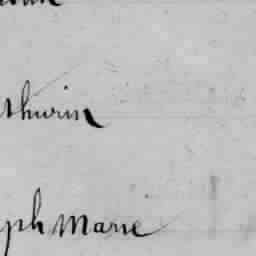 thurin
ph Marie